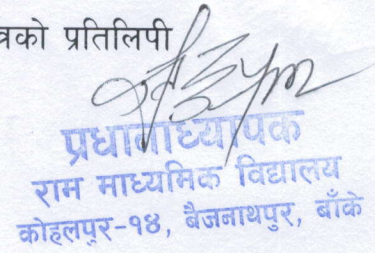 त्रको प्रतिलिपी
प्रधानाध्यापक
राम माध्यमिक विद्यालय
कोहलपुर-१४, बैजनाथपुर, बाँके